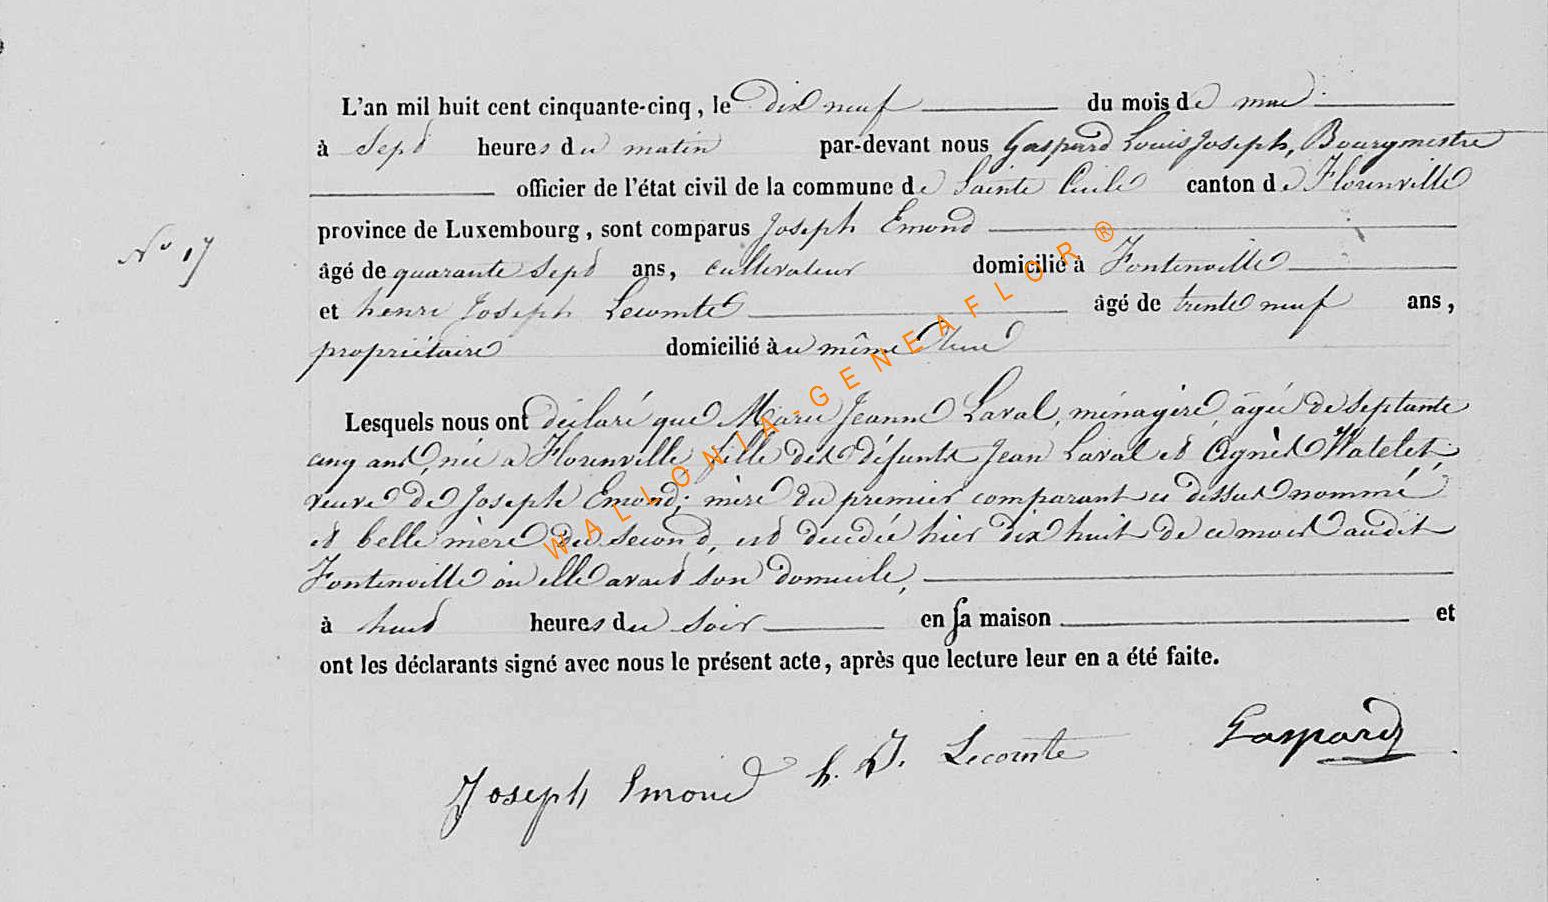 L'an mil huit cent cinquante-cinq, le dix neuf du mois de mai
à Sept heures du matin par-devant nous Gaspard Louis Joseph, Bourgmestre
officier de l'état civil de la commune de Sainte Cécile canton de Florenville
province de Luxembourg, sont comparus Joseph Emond
N° 17
âgé de quarante Sept ans, cultivateur domicilié à Fontenoille
et henri Joseph Lecomte âgé de trente neuf ans,
propriétaire domicilié au même lieu
Lesquels nous ont déclaré que Marie Jeanne Laval, ménagère, âgée de septante
cinq ans, née a Florenville, fille des défunts Jean Laval et Agnès Watelet,
veuve de Joseph Emond; mère du premier comparant ci dessus nommé
et belle mère du second, est décédée hier dix huit de ce mois audit
Fontenoille où elle avait son domicile,
à huit heures du Soir en sa maison et
ont les déclarants signé avec nous le présent acte, après que lecture leur en a été faite.
Joseph Emond h. J. Lecomte Gaspard
WALLONIA-GENEAFLOR ®